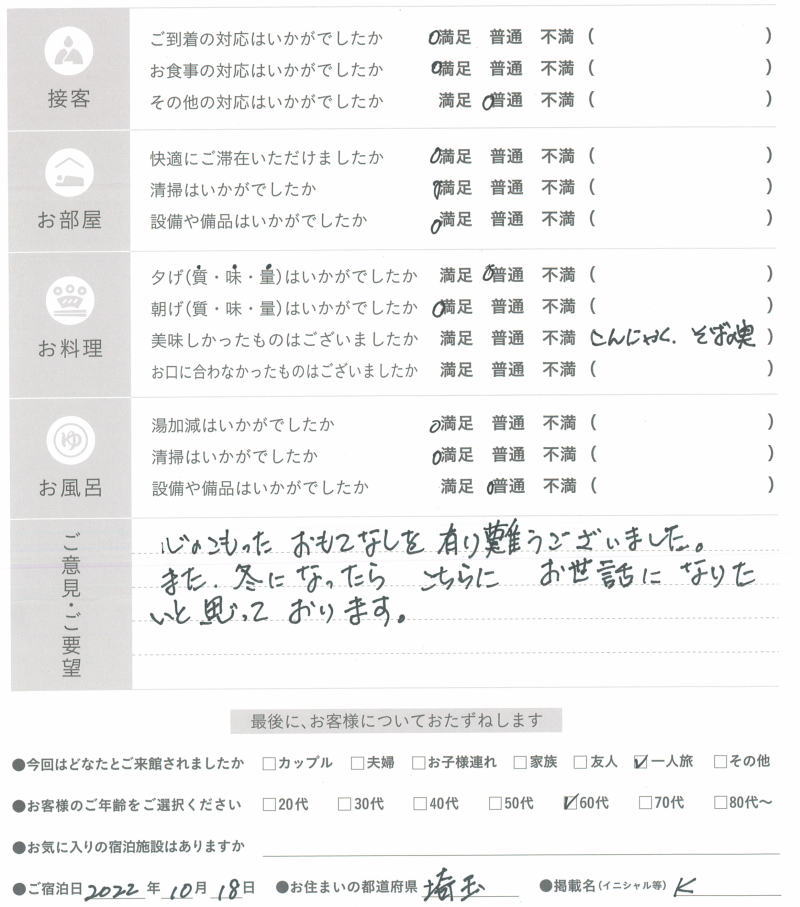 接客
ご到着の対応はいかがでしたか 満足 普通 不満 ( )
お食事の対応はいかがでしたか 満足 普通 不満 ( )
その他の対応はいかがでしたか 満足 普通 不満 ( )
お部屋
快適にご滞在いただけましたか 満足 普通 不満 ( )
清掃はいかがでしたか 満足 普通 不満 ( )
設備や備品はいかがでしたか 満足 普通 不満 ( )
お料理
夕げ(質・味・量)はいかがでしたか 満足 普通 不満 ( )
朝げ(質・味・量)はいかがでしたか 満足 普通 不満 ( )
美味しかったものはございましたか 満足 普通 不満 (こんにゃく、そばの実)
お口に合わなかったものはございましたか 満足 普通 不満 ( )
ゆ
お風呂
湯加減はいかがでしたか 満足 普通 不満 ( )
清掃はいかがでしたか 満足 普通 不満 ( )
設備や備品はいかがでしたか 満足 普通 不満 ( )
ご意見・ご要望
心のこもった おもてなしを 有り難うございました。
また、冬になったら こちらに お世話になりた
いと思って おります。
最後に、お客様についておたずねします
●今回はどなたとご来館されましたか □カップル □夫婦 □お子様連れ □家族 □友人 ☑一人旅 □その他
●お客様のご年齢をご選択ください □20代 □30代 □40代 □50代 ☑60代 □70代 □80代〜
●お気に入りの宿泊施設はありますか
●ご宿泊日 2022 年 10 月 18 日 ●お住まいの都道府県 埼玉 ●掲載名(イニシャル等) K